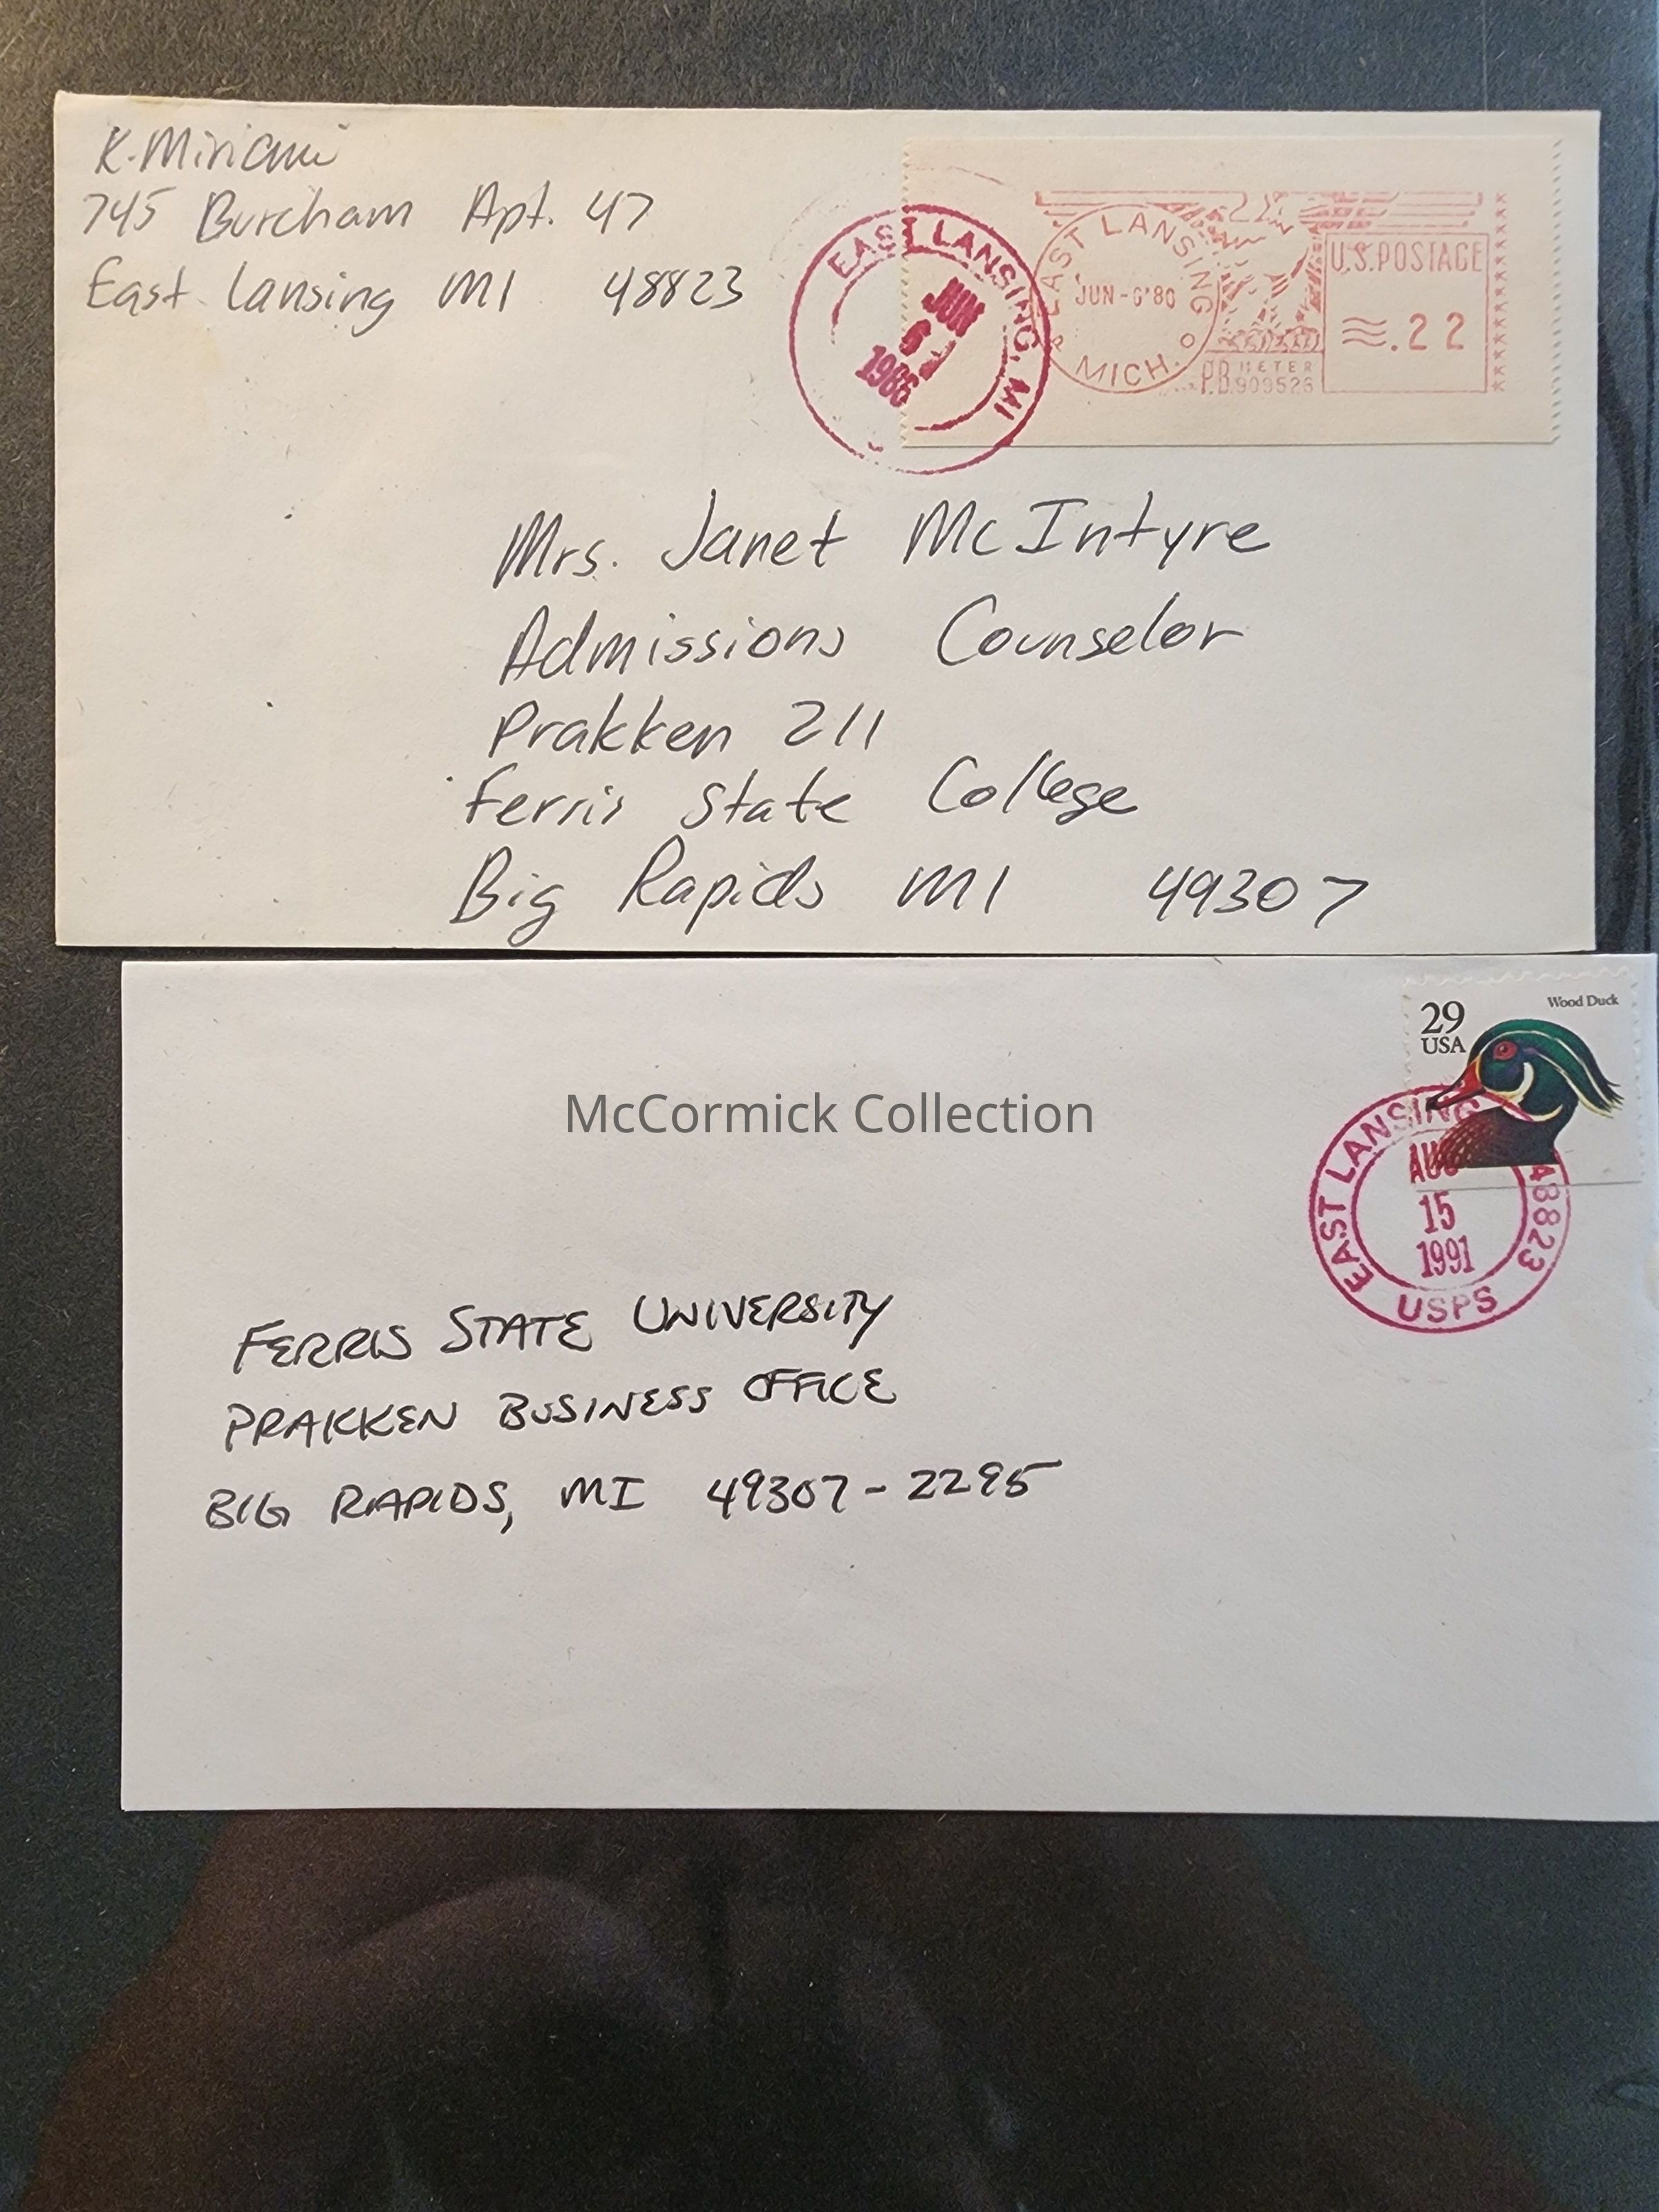 K. Miriani
745 Burcham Apt. 47
East Lansing MI 48823
EAST LANSING, MI
JUN
6
1986
EAST LANSING
JUN-6'86
MICH.
P.B. METER
909526
U.S. POSTAGE
.22
Mrs. Janet McIntyre
Admissions Counselor
Prakken 211
Ferris State College
Big Rapids MI 49307
29
USA
Wood Duck
McCormick Collection
EAST LANSING
48823
USPS
AUG
15
1991
FERRIS STATE UNIVERSITY
PRAKKEN BUSINESS OFFICE
BIG RAPIDS, MI 49307-2295